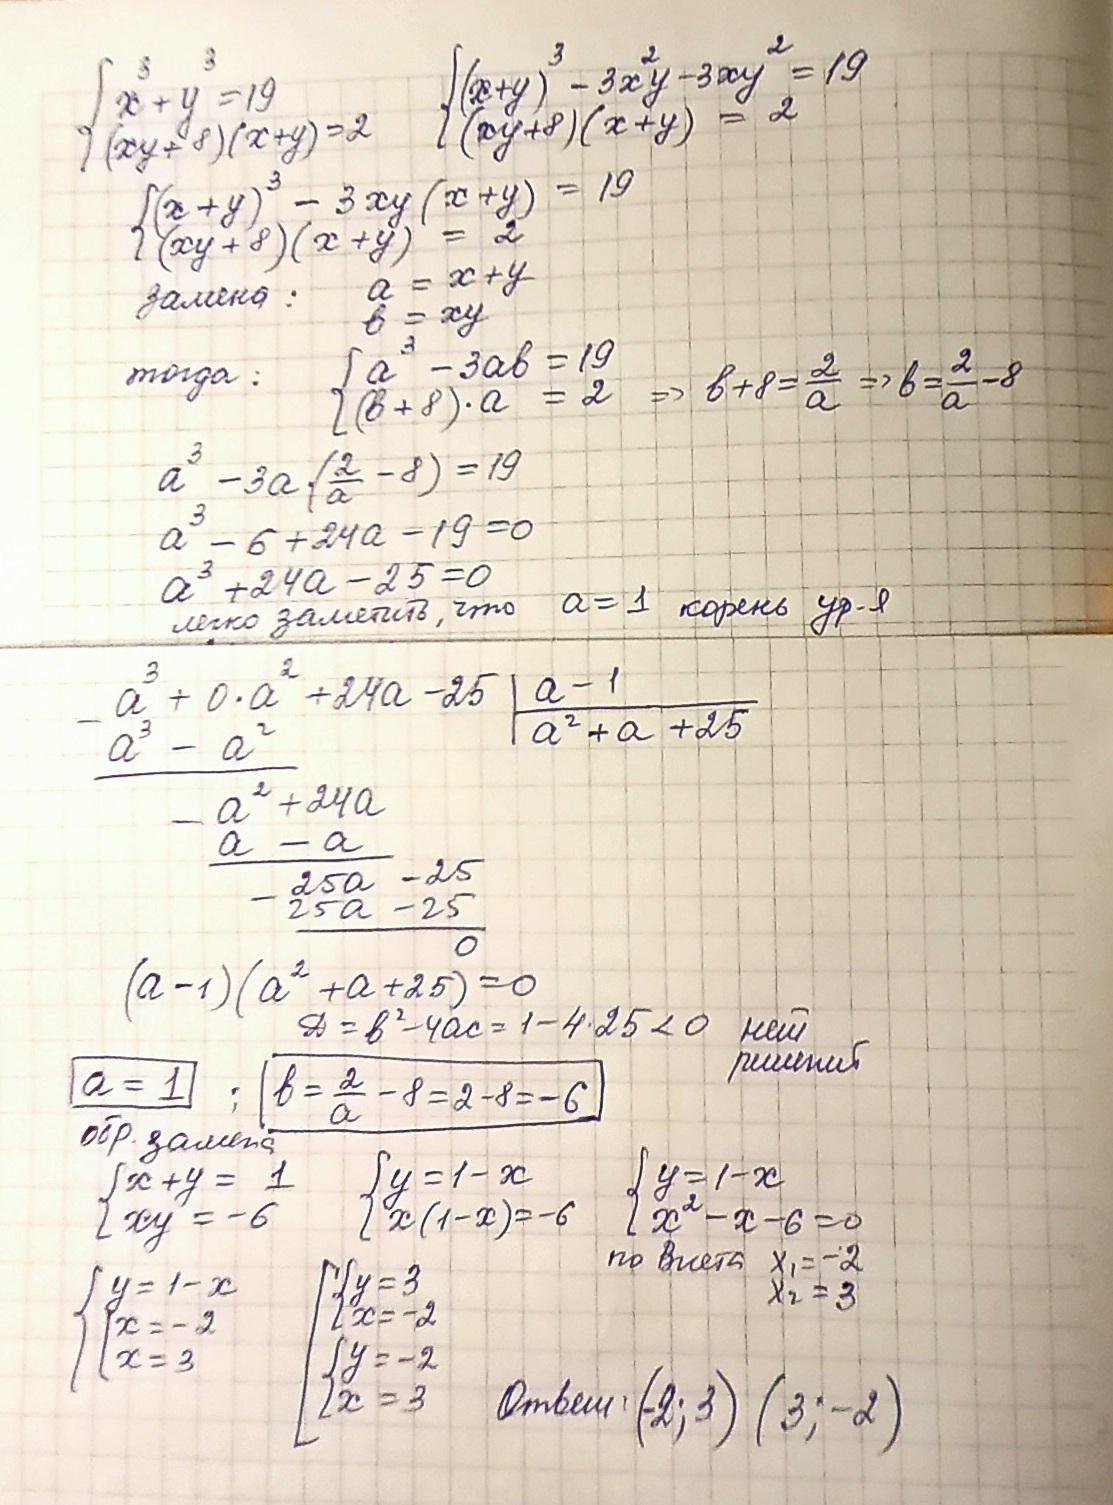 {x³ + y³ = 19
(xy + 8)(x+y) = 2
{(x+y)³ - 3x²y - 3xy² = 19
(xy+8)(x+y) = 2
{(x+y)³ - 3xy(x+y) = 19
(xy+8)(x+y) = 2
замена: a = x+y
в = xy
тогда: {a³ - 3aв = 19
(в+8)·a = 2 => в+8 = 2/a => в = 2/a - 8
a³ - 3a·(2/a - 8) = 19
a³ - 6 + 24a - 19 = 0
a³ + 24a - 25 = 0
легко заметить, что a = 1 корень ур-я
- a³ + 0·a² + 24a - 25 | a - 1
a³ - a² | a² + a + 25
- a² + 24a
a - a
- 25a - 25
25a - 25
0
(a-1)(a² + a + 25) = 0
D = в² - 4ac = 1 - 4·25 < 0 нет
решений
a = 1 ; в = 2/a - 8 = 2 - 8 = -6
обр. замена
{x + y = 1
xy = -6
{y = 1 - x
x(1-x) = -6
{y = 1 - x
x² - x - 6 = 0
по Виета x₁ = -2
x₂ = 3
{y = 1 - x
[x = -2
x = 3
[{y = 3
x = -2
{y = -2
x = 3
Ответ: (-2; 3) (3; -2)